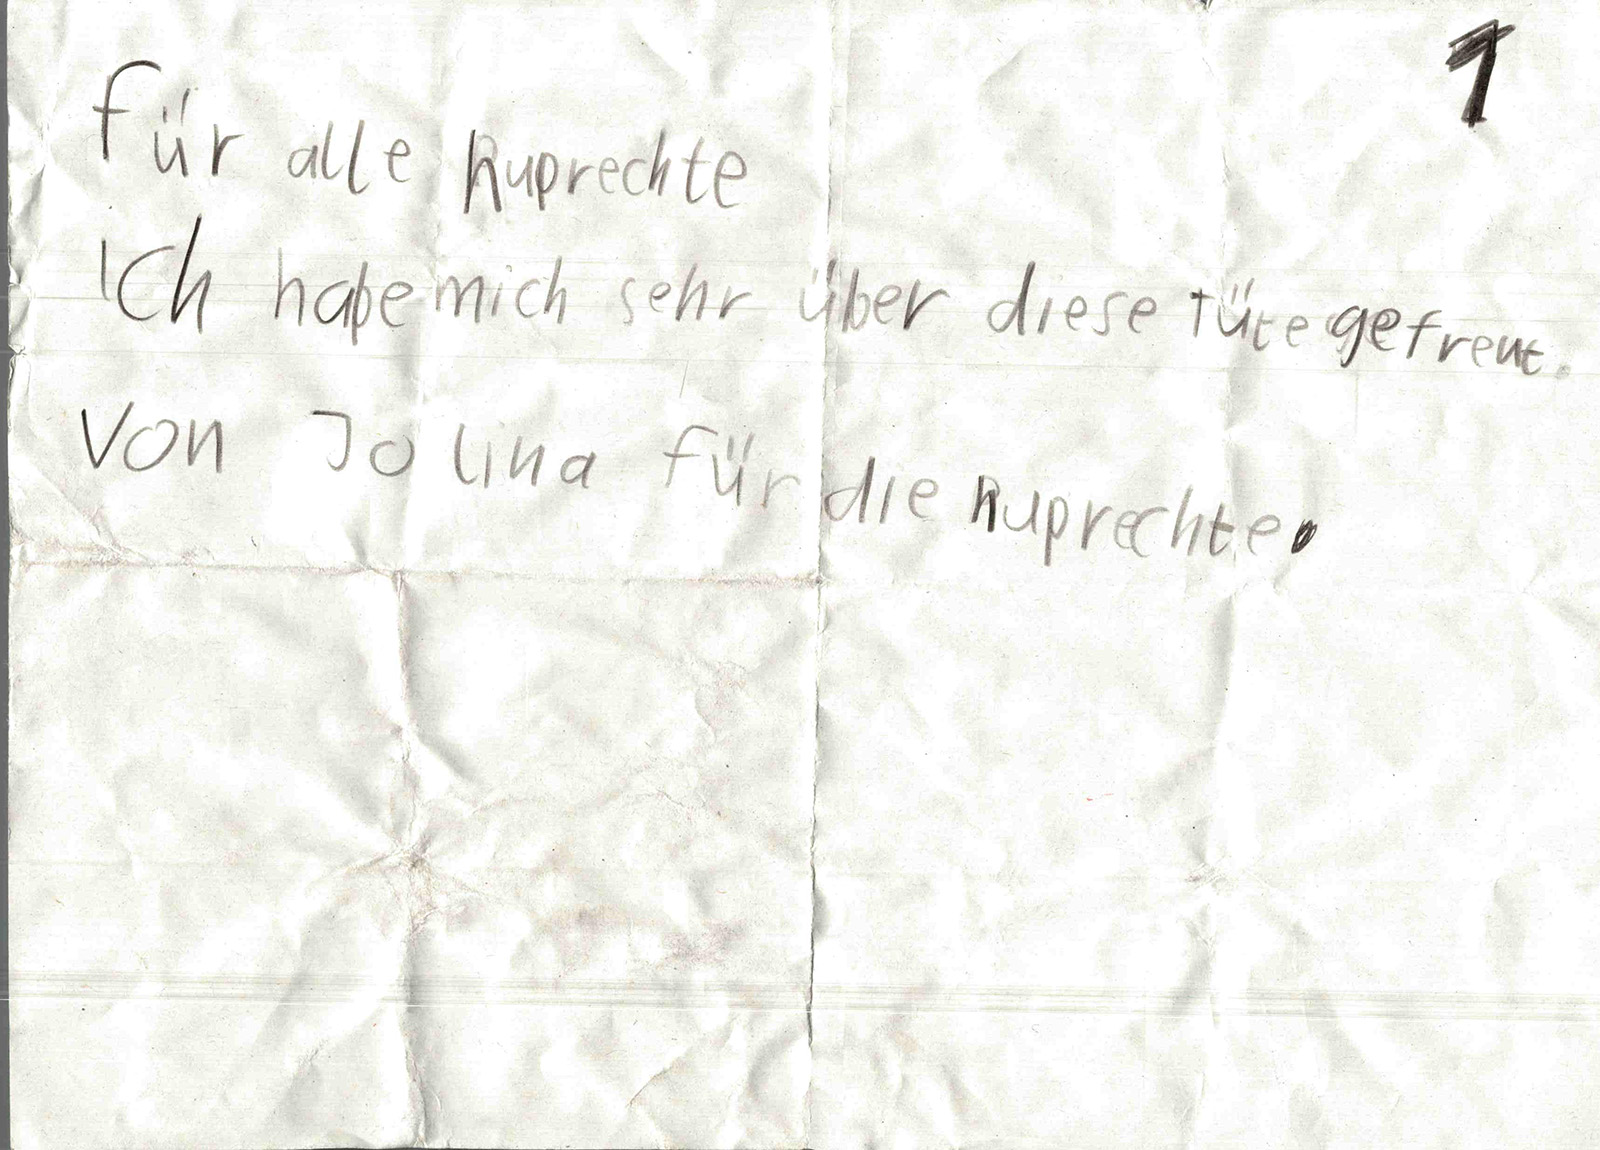 1
für alle Ruprechte
Ich habe mich sehr über diese Tüte gefreut.
Von Jolina für die Ruprechte.